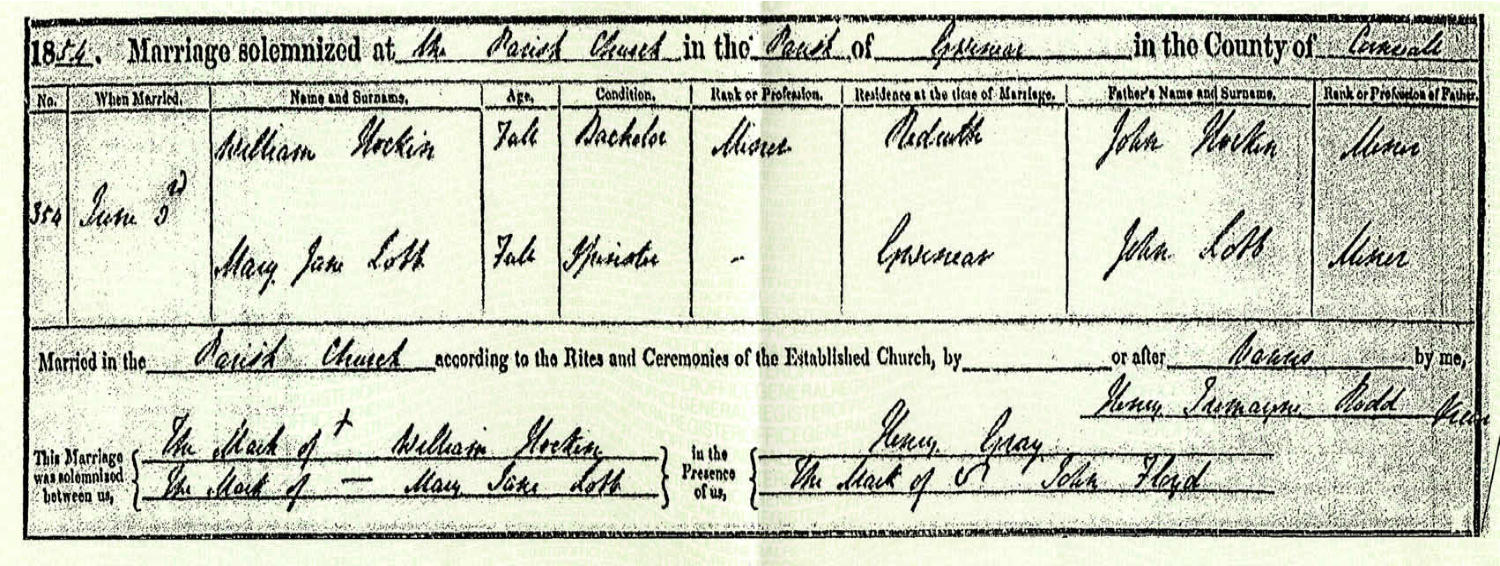 1854. Marriage solemnized at the Parish Church in the Parish of Gwinear in the County of Cornwall
No. When Married. Name and Surname. Age. Condition. Rank or Profession. Residence at the time of Marriage. Father's Name and Surname. Rank or Profession of Father.
William Hockin Full Bachelor Miner Redruth John Hockin Miner
354 June 3d
Mary Jane Lobb Full Spinster - Gwinear John Lobb Miner
Married in the Parish Church according to the Rites and Ceremonies of the Established Church, by or after Banns by me,
Henry Tremayne Rodd
The Mark of + William Hockin Henry Gray
This Marriage was solemnized between us, in the Presence of us,
The Mark of — Mary Jane Lobb The Mark of John Floyd